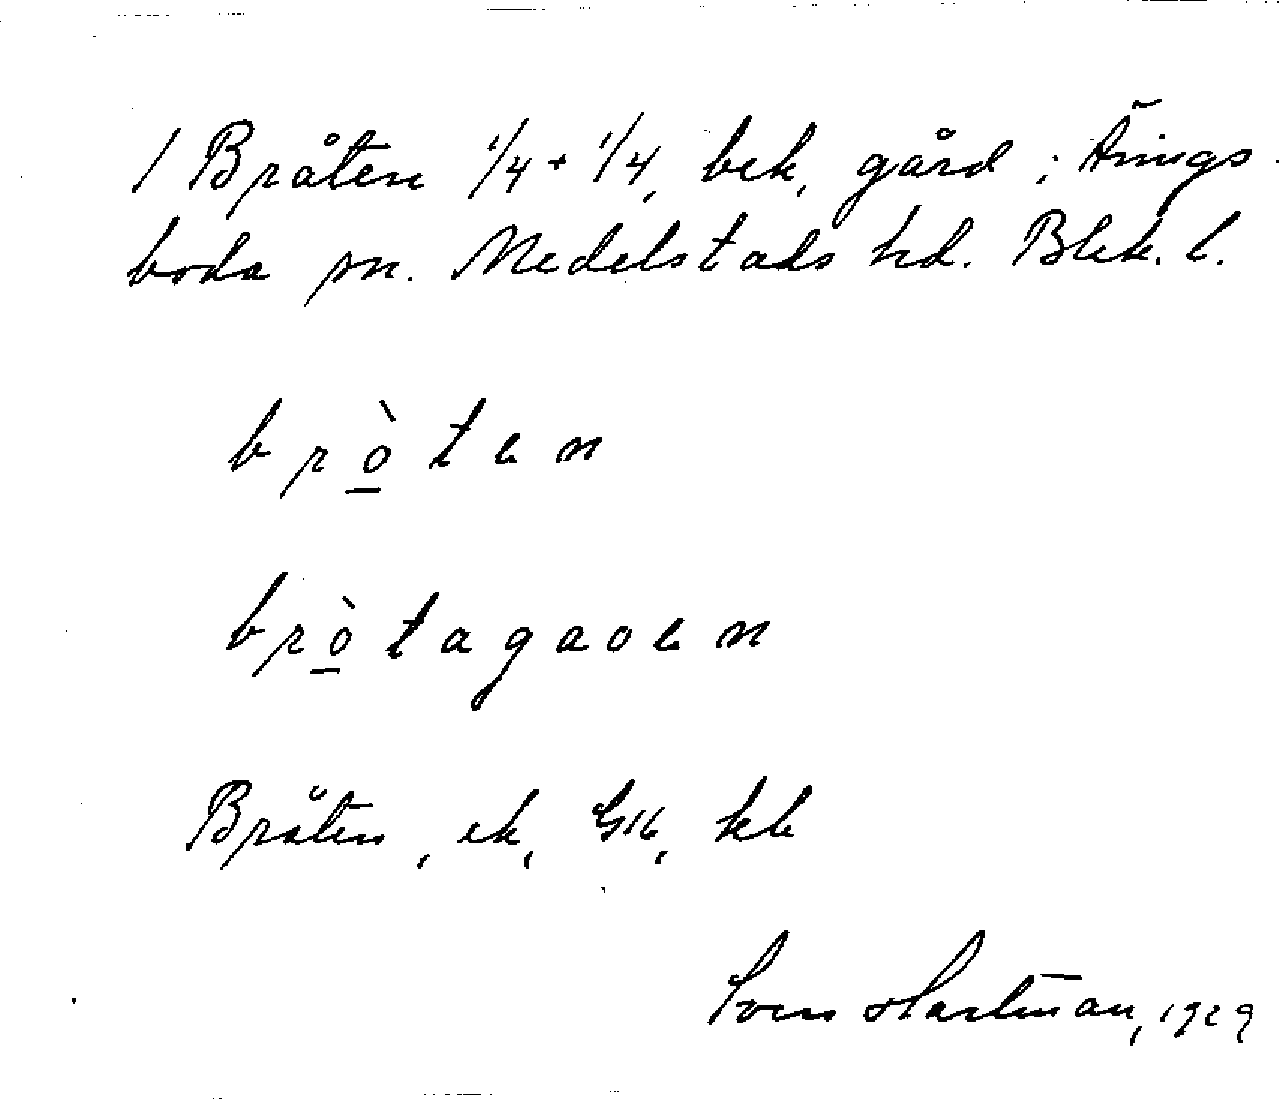 1 Bråten 1/4 + 1/4, bek, gård; Ärings-
boda sn. Medelstads hd. Blek. l.
brò̱ten
brò̱tagaoen
Bråten, ek, GK, kb
Sven Hartman, 1929